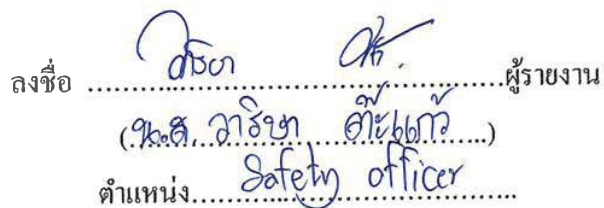 ลงชื่อ วาริษา ต๊ะ. ผู้รายงาน
(น.ส. วาริษา ต๊ะแก้ว)
ตำแหน่ง Safety officer